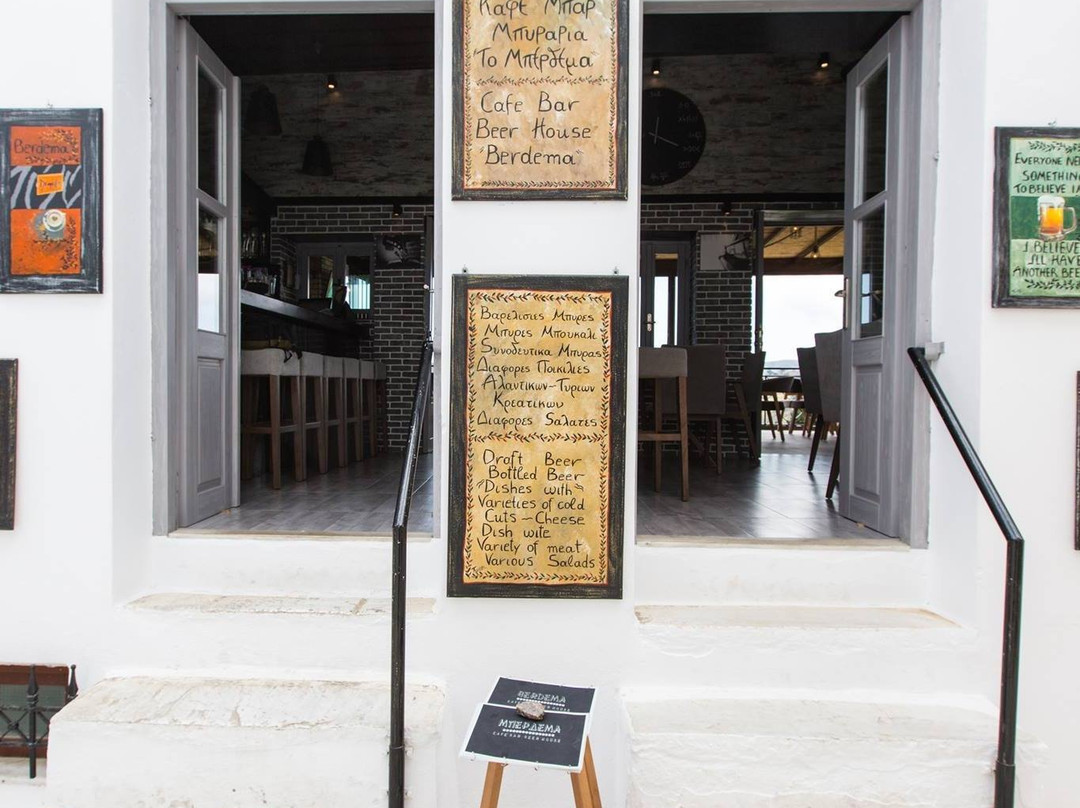 Καφέ Μπαρ
Μπυραρία
"Το Μπέρδεμα"
Cafe Bar
Beer House
"Berdema"
Βαρελίσιες Μπύρες
Μπύρες Μπουκάλι
Συνοδευτικά Μπύρας
Διάφορες Ποικιλίες
Αλαντικών-Τυριών
Κρεατικών
Διάφορες Σαλάτες
Draft Beer
Bottled Beer
"Dishes with"
Varieties of cold
Cuts - Cheese
Dish wite
Variety of meat
Various Salads
Berdema
EVERYONE NE
SOMETHIN
TO BELIEVE I
I BELIEVE
I'LL HAVE
ANOTHER BEE
BERDEMA
CAFE BAR BEER HOUSE
ΜΠΕΡΔΕΜΑ
CAFE BAR BEER HOUSE